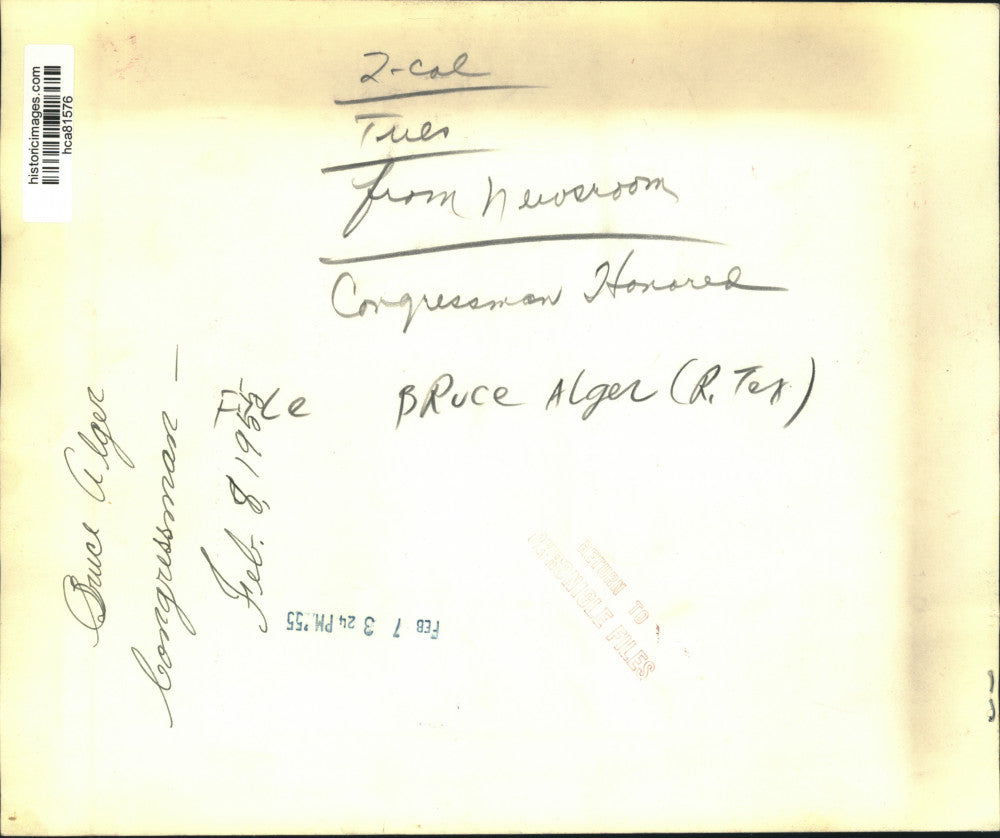 historicimages.com
hca81576
2-col
Tues
from Newsroom
Congressman Honored
File BRUCE Alger (R. Tex)
Bruce Alger
Congressman —
Feb. 8, 1955
FEB 7 3 24 PM '55
RETURN TO
CHRONICLE FILES